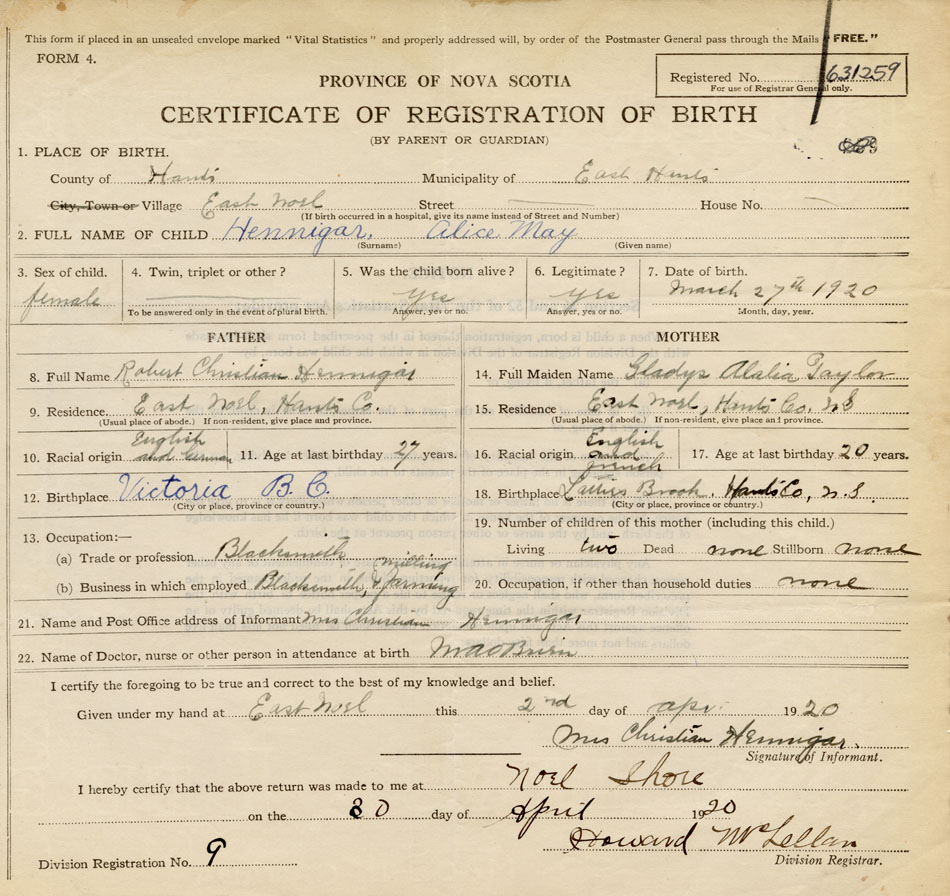 This form if placed in an unsealed envelope marked "Vital Statistics" and properly addressed will, by order of the Postmaster General pass through the Mails "FREE."
FORM 4.
Registered No. 631259
For use of Registrar General only.
PROVINCE OF NOVA SCOTIA
CERTIFICATE OF REGISTRATION OF BIRTH
(BY PARENT OR GUARDIAN)
1. PLACE OF BIRTH.
County of Hants Municipality of East Hants
City, Town or Village East Noel Street House No.
(If birth occurred in a hospital, give its name instead of Street and Number)
2. FULL NAME OF CHILD Hennigar, Alice May
(Surname) (Given name)
3. Sex of child. 4. Twin, triplet or other? 5. Was the child born alive? 6. Legitimate? 7. Date of birth.
female yes yes March 27th 1920
To be answered only in the event of plural birth. Answer, yes or no. Answer, yes or no. Month, day, year.
FATHER MOTHER
8. Full Name Robert Christian Hennigar 14. Full Maiden Name Gladys Alalia Taylor
9. Residence. East Noel, Hants Co. 15. Residence East Noel, Hants Co. N S
(Usual place of abode.) If non-resident, give place and province. (Usual place of abode.) If non-resident, give place and province.
10. Racial origin English and German 11. Age at last birthday 27 years. 16. Racial origin English and french 17. Age at last birthday 20 years.
12. Birthplace Victoria B. C. 18. Birthplace Brook, Hants Co, N. S.
(City or place, province or country.) (City or place, province or country.)
13. Occupation:— 19. Number of children of this mother (including this child.)
(a) Trade or profession Blacksmith Living two Dead none Stillborn none
(b) Business in which employed Blacksmith, milling & farming 20. Occupation, if other than household duties none
21. Name and Post Office address of Informant Mrs Christian Hennigar
22. Name of Doctor, nurse or other person in attendance at birth
I certify the foregoing to be true and correct to the best of my knowledge and belief.
Given under my hand at East Noel this 2nd day of Apr. 1920
Mrs Christian Hennigar.
Signature of Informant.
I hereby certify that the above return was made to me at Noel Shore
on the 30 day of April 1920
Howard McLellan
Division Registration No. 9 Division Registrar.